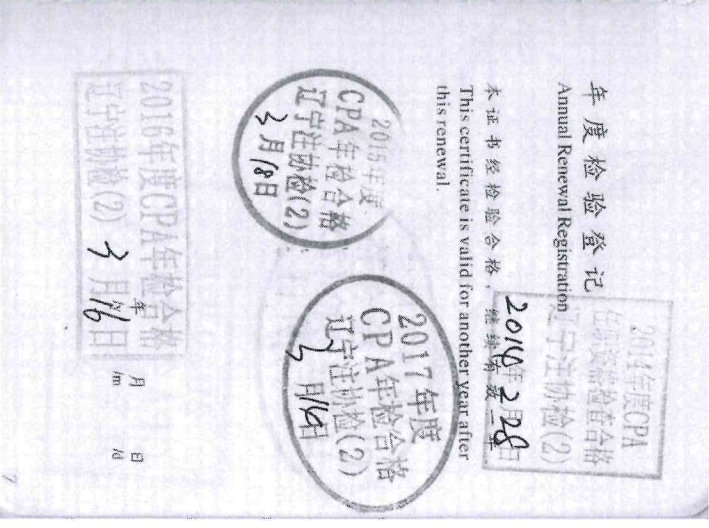 年度检验登记
Annual Renewal Registration
本证书经检验合格，继续有效一年
This certificate is valid for another year after
this renewal.
2014年度CPA
任职资格检查合格
辽宁注协检(2)
2014年2月28日
2015年度
CPA年检合格
辽宁注协检(2)
3月18日
2017年度
CPA年检合格
辽宁注协检(2)
3月16日
2016年度CPA年检合格
辽宁注协检(2)
3月16日
年 月 日
/m /d
7